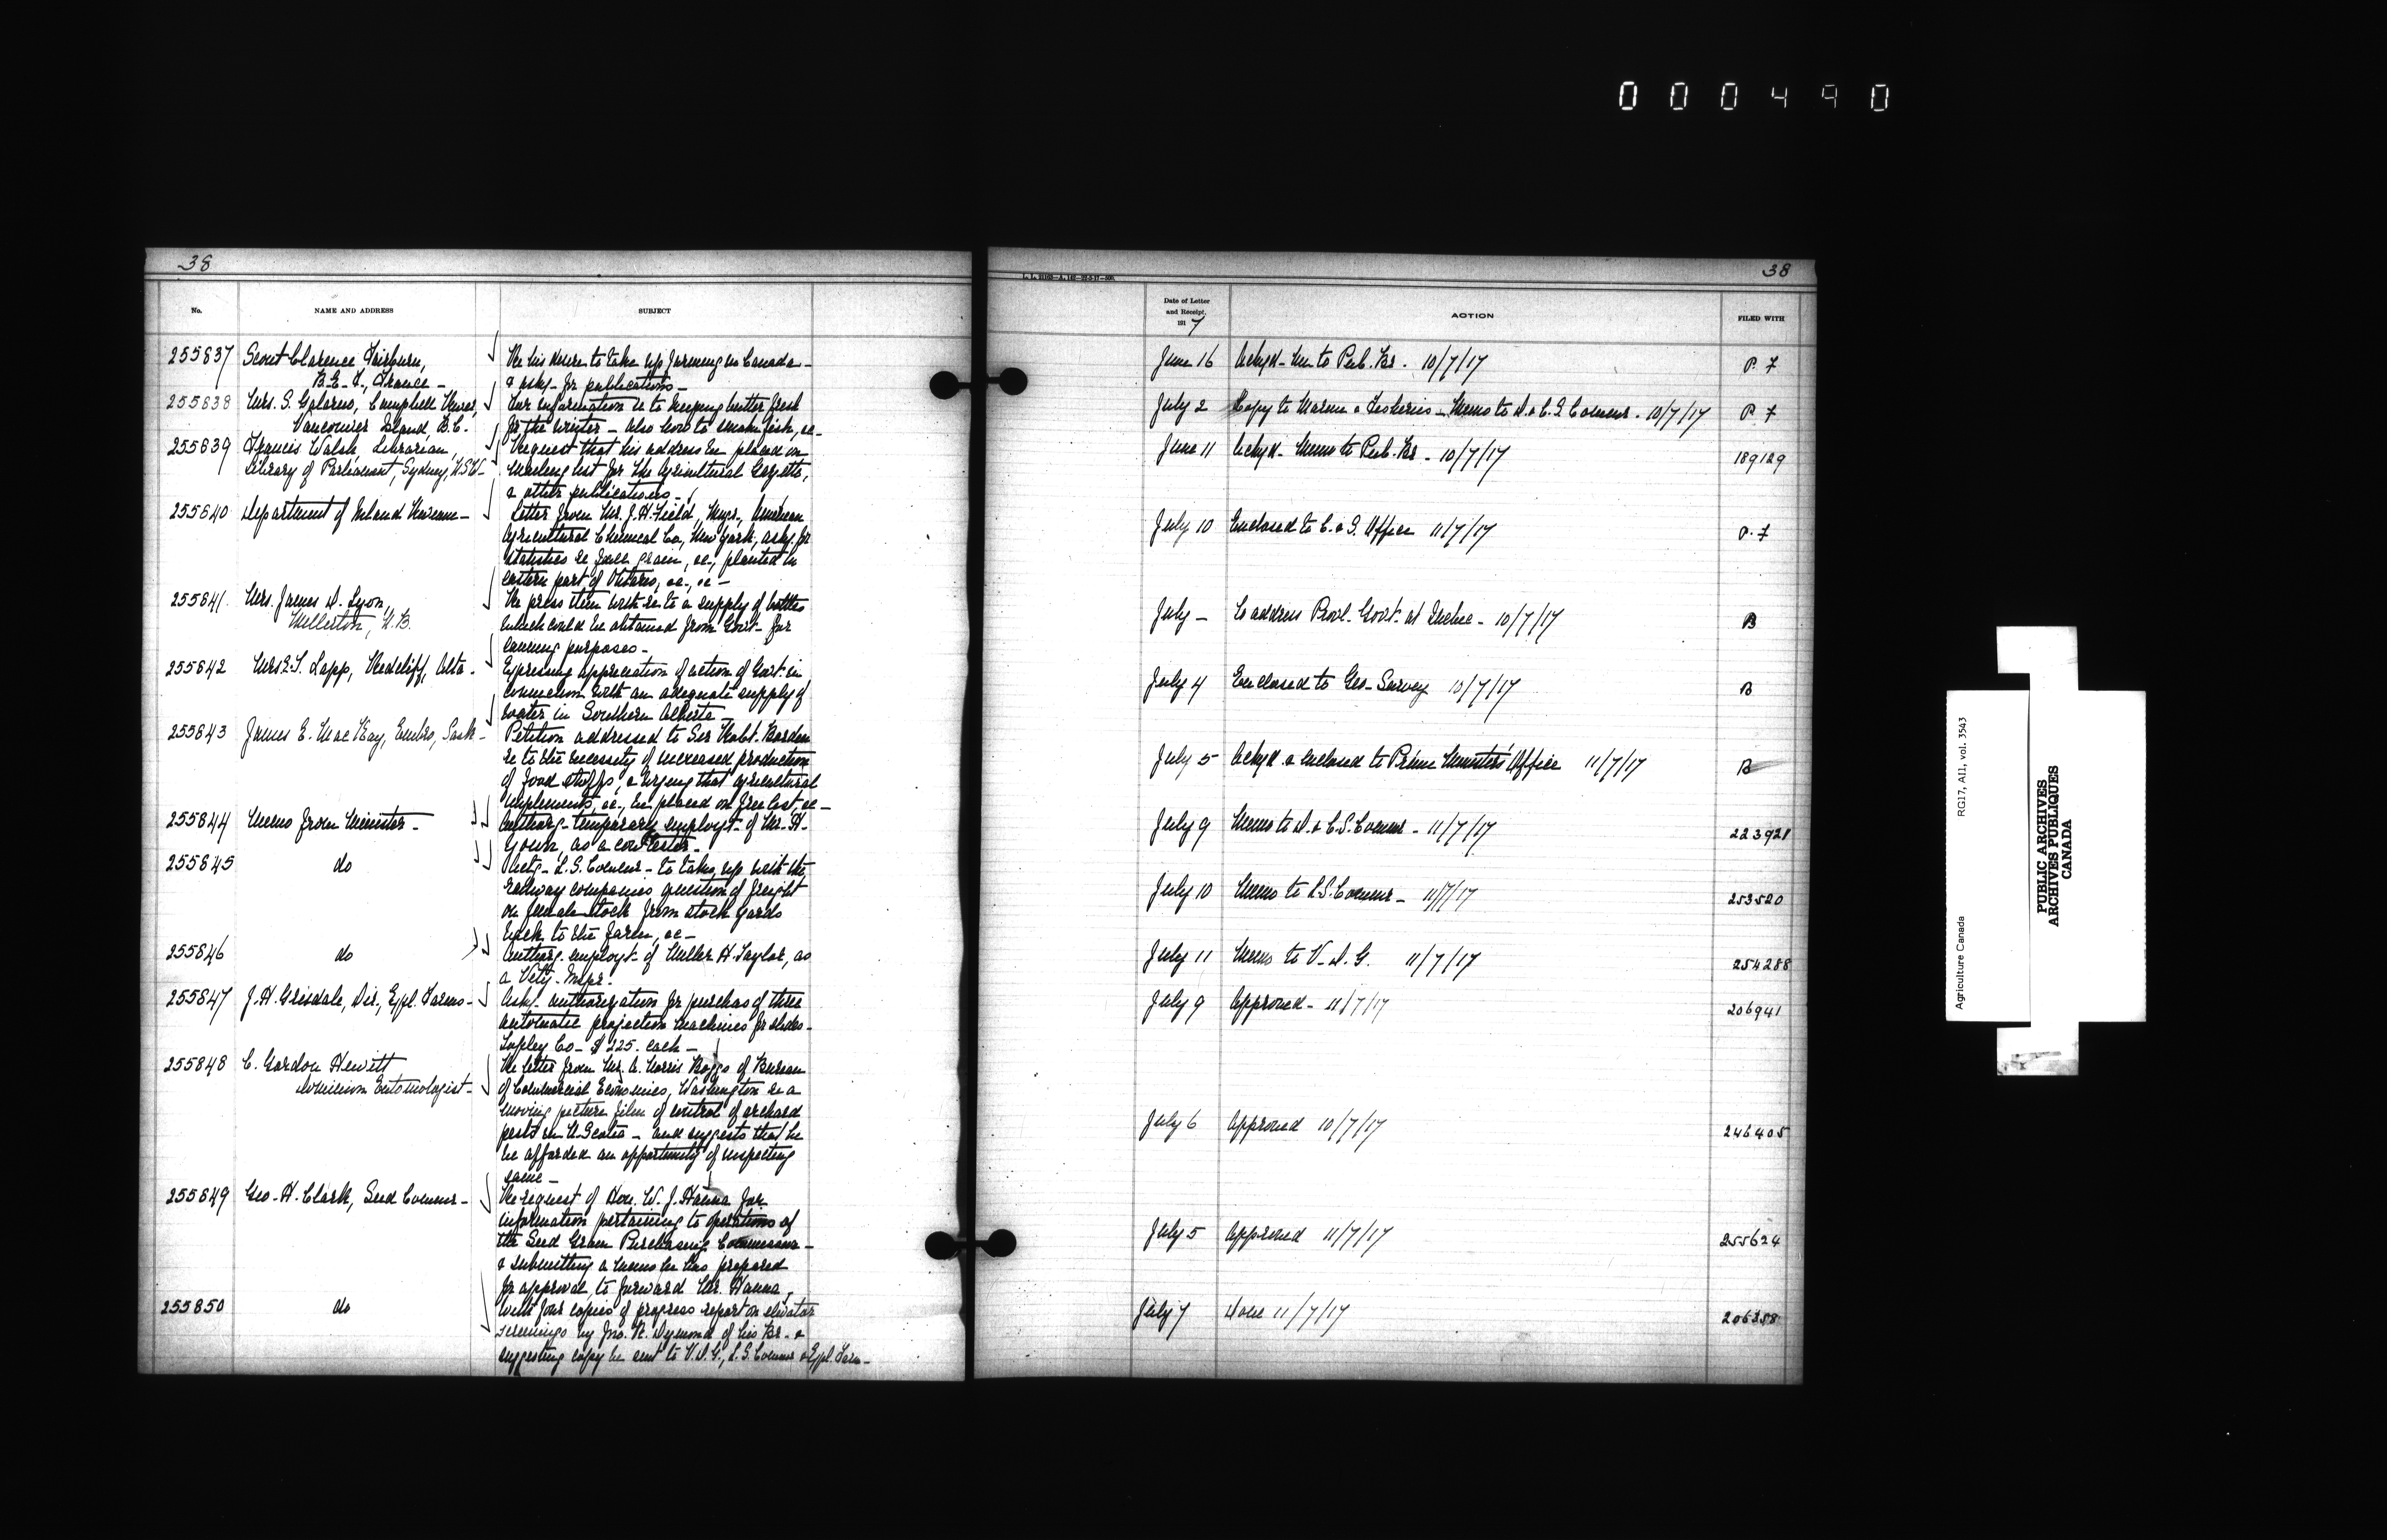 000490
38
No.
NAME AND ADDRESS
SUBJECT
255837 Scout Clarence Fairburn,
B.E.F., France -
Re his desire to take up farming in Canada -
& asks - for publications -
255838 Mrs. S. Campbell River,
Vancouver Island, B.C.
For information re to keeping butter fresh
for the winter - also how to smoke fish, &c -
255839 Francis Walsh, Librarian,
Library of Parliament, Sydney, N.S.W. -
Request that his address be placed on
mailing list for the Agricultural Gazette,
& other publications -
255840 Department of Inland Revenue -
Letter from Mr. J. H. Field, Mngr., American
Agricultural Chemical Co., New York, askg. for
statistics re fall grain, &c., planted in
eastern part of Ontario, &c., &c -
255841 Mrs. James D. Lyon,
Millerton, N.B.
Re press item with re to a supply of bottles
which could be obtained from Govt - for
canning purposes -
255842 Mrs. E. S. Lapp, Redcliff, Alta -
Expressing appreciation of action of Govt. in
connection with an adequate supply of
water in Southern Alberta -
255843 James E. MacKay, Embro, Sask -
Petition addressed to Sir Robt. Borden
re to the necessity of increased production
of food stuffs, & urging that agricultural
implements, &c., be placed on free list, &c -
255844 Memo from Minister -
Authorg - temporary employt - of Mr. H.
Youn, as a cow tester -
255845 do
L.S. Commr - to take up with the
railway companies question of freight
on female stock from stock yards
back to the farm, &c -
255846 do
Authorg. employt - of Miller H. Taylor, as
a Vety - Inspr -
255847 J. H. Grisdale, Dir., Expl. Farms -
Asks - authorization for purchas of three
automatic projection machines for slides -
Topley Co - $225. each -
255848 C. Gordon Hewitt
Dominion Entomologist -
Re letter from Mr. A. Norris Boggs of Bureau
of Commercial Economics, Washington re a
moving picture film of control of orchard
pests in N. Scotia - and suggests that he
be afforded an opportunity of inspecting
same -
255849 Geo. H. Clark, Seed Commr -
Re request of Hon. W. J. Hanna for
information pertaining to operations of
the Seed Grain Purchasing Commission -
& submitting a memo he has prepared
for approval, to forward Mr. Hanna,
255850 do
With four copies of progress report on elevator
screenings by Jno. R. Dymond of his Br. - &
suggesting copy be sent to V.D.G., L.S. Commr & Expl. Farm -
38
Date of Letter
and Receipt.
1917
ACTION
FILED WITH
June 16 Ackgd - Me to Pub. Br. 10/7/17 P. 7
July 2 Copy to Marine & Fisheries - Memo to D. & C.S. Commr. 10/7/17 P. 7
June 11 Ackgd - Memo to Pub. Br - 10/7/17 189129
July 10 Enclosed to C. & S. Office 11/7/17 P. 7
July - To address Provl. Govt. at Quebec - 10/7/17 B
July 4 Enclosed to Geo. Survey 10/7/17 B
July 5 Ackgd & enclosed to Prime Ministers' Office 11/7/17 B
July 9 Memo to D. & C.S. Commr - 11/7/17 223921
July 10 Memo to L.S. Commr - 11/7/17 253520
July 11 Memo to V. D. G. 11/7/17 254288
July 9 Approved - 11/7/17 206941
July 6 Approved 10/7/17 246405
July 5 Approved 11/7/17 255624
July 7 Done 11/7/17 206358
Agriculture Canada RG17, AII, vol. 3543
PUBLIC ARCHIVES
ARCHIVES PUBLIQUES
CANADA